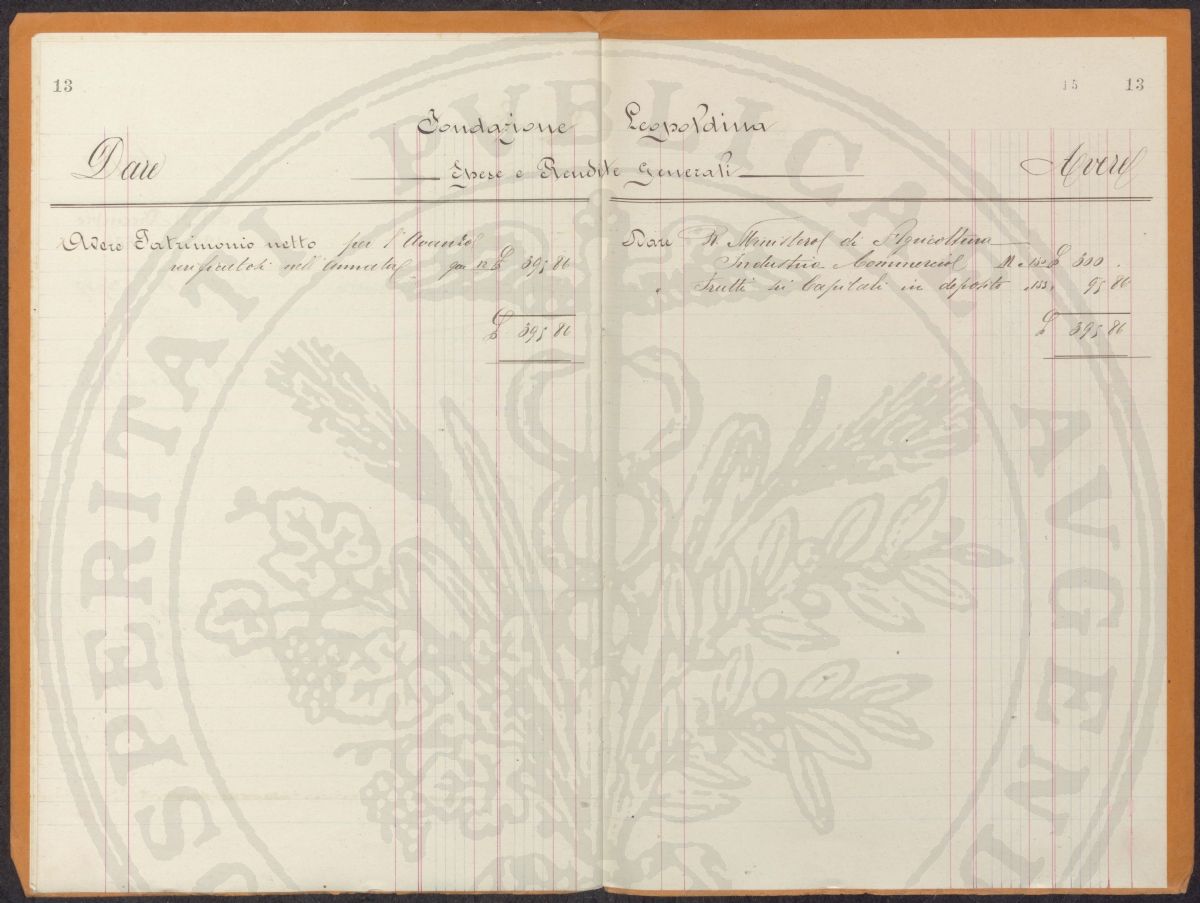 13
15 13
Fondazione Leopoldina
Dare Spese e Rendite Generali Avere
Avere Patrimonio netto per l'Avanzo
verificatosi nell'annata gno 12 £ 395 86
£ 395 86
Dare R. Ministero di Agricoltura
Industria Commercio M. 150 £ 300 .
" Frutti sui Capitali in deposito " 153 " 95 86
£ 395 86
PUBLICAE
PROSPERITATI
AVGENDAE